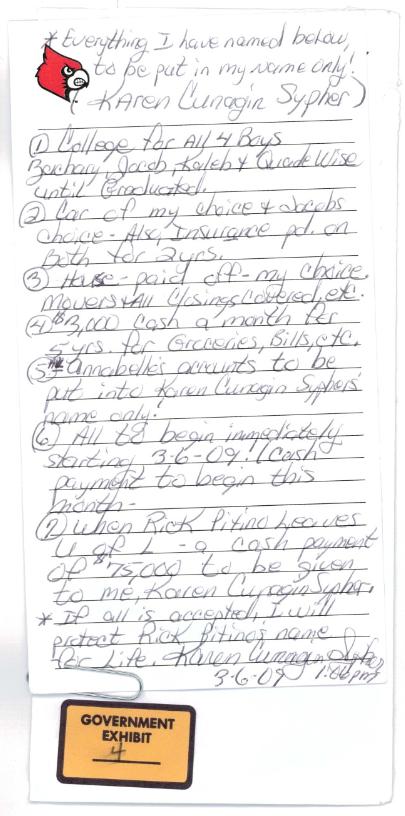 * Everything I have named below,
to be put in my name only!
(Karen Cunagin Sypher)
① College for All 4 Boys
Zachary, Jacob, Kaleb & Quade Wise
until Graduated.
② Car of my choice & Jacobs
choice - Also, Insurance pd. on
Both for 2 yrs.
③ House - paid off - my choice.
Movers & All Closings Covered, etc.
④ $3,000 cash a month for
5 yrs. for Groceries, Bills, etc.
⑤ Annabelle's accounts to be
put into Karen Cunagin Sypher's
name only!
⑥ All to begin immediately
starting 3-6-09! (Cash
payment to begin this
month -
⑦ When Rick Pitino Leaves
U of L - a cash payment
of $75,000 to be given
to me, Karen Cunagin Sypher.
* If all is accepted, I will
protect Rick Pitino's name
for Life. Karen Cunagin Sypher
3-6-09 1:06 pm
GOVERNMENT
EXHIBIT
4